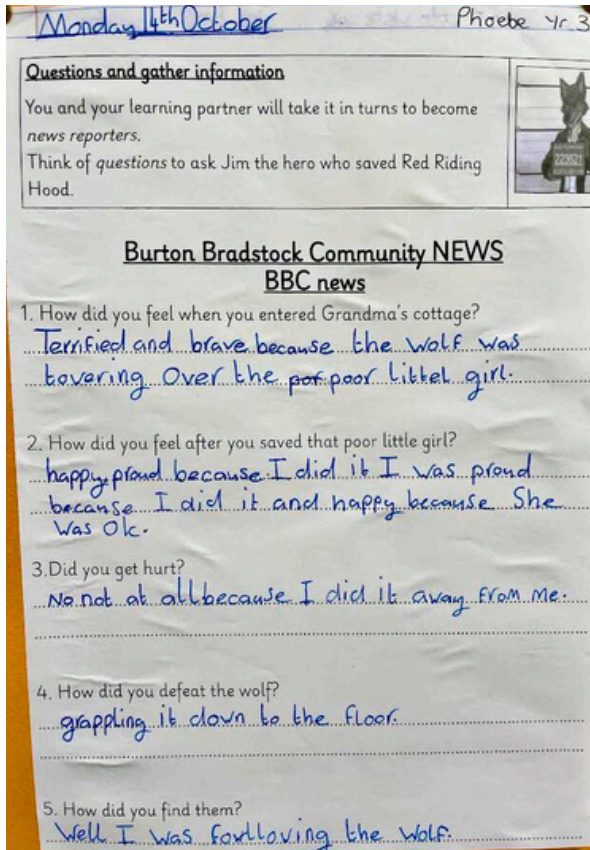 Monday 14th October
Phoebe Yr 3
Questions and gather information
You and your learning partner will take it in turns to become
news reporters.
Think of questions to ask Jim the hero who saved Red Riding
Hood.
223821
Burton Bradstock Community NEWS
BBC news
1. How did you feel when you entered Grandma's cottage?
Terrified and brave because the wolf was
tovering over the por poor littel girl.
2. How did you feel after you saved that poor little girl?
happy, proud because I did it I was proud
because I did it and happy because She
was Ok.
3.Did you get hurt?
No not at all because I did it away from me.
4. How did you defeat the wolf?
grappling it down to the floor.
5. How did you find them?
Well I was fowlloving the wolf.